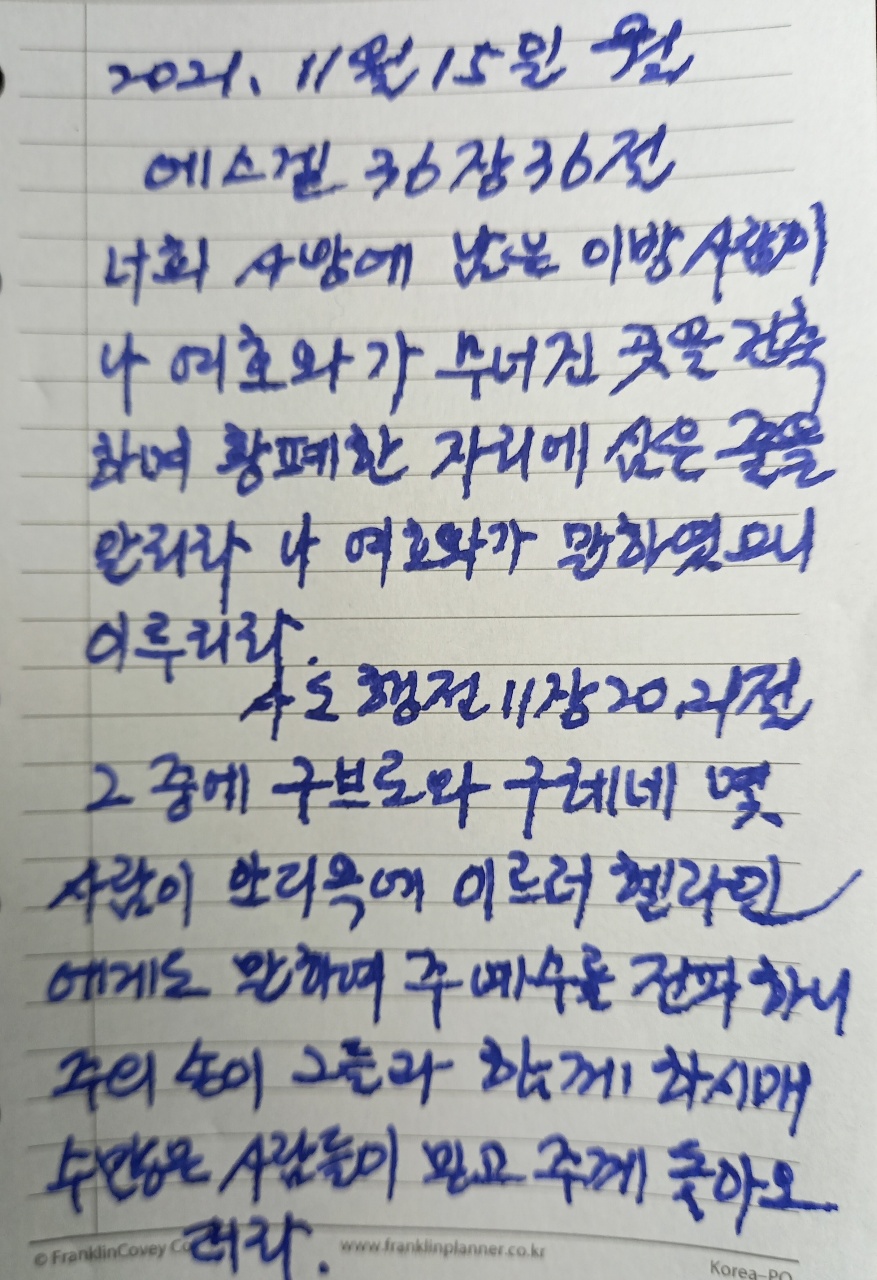 2021. 11월 15일 월
에스겔 36장 36절
너희 사방에 남은 이방 사람이
나 여호와가 무너진 곳을 건축
하며 황폐한 자리에 심은 줄을
알리라 나 여호와가 말하였으니
이루리라.
사도행전 11장 20, 21절
그 중에 구브로와 구레네 몇
사람이 안디옥에 이르러 헬라인
에게도 말하며 주 예수를 전파하니
주의 손이 그들과 함께 하시매
수많은 사람들이 믿고 주께 돌아오
더라.
© FranklinCovey Co
www.franklinplanner.co.kr
Korea-PO